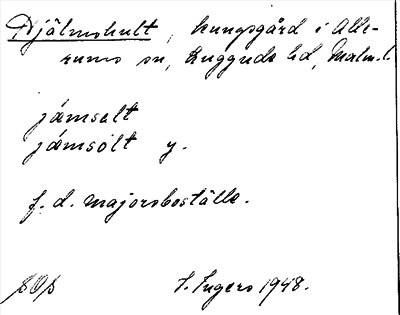 Djälmshult, kungsgård i Alle-
rums sn, Luggude hd, Malm. l.
jámselt
jámsolt y.
f. d. majorsboställe.
I. Ingers 1948.